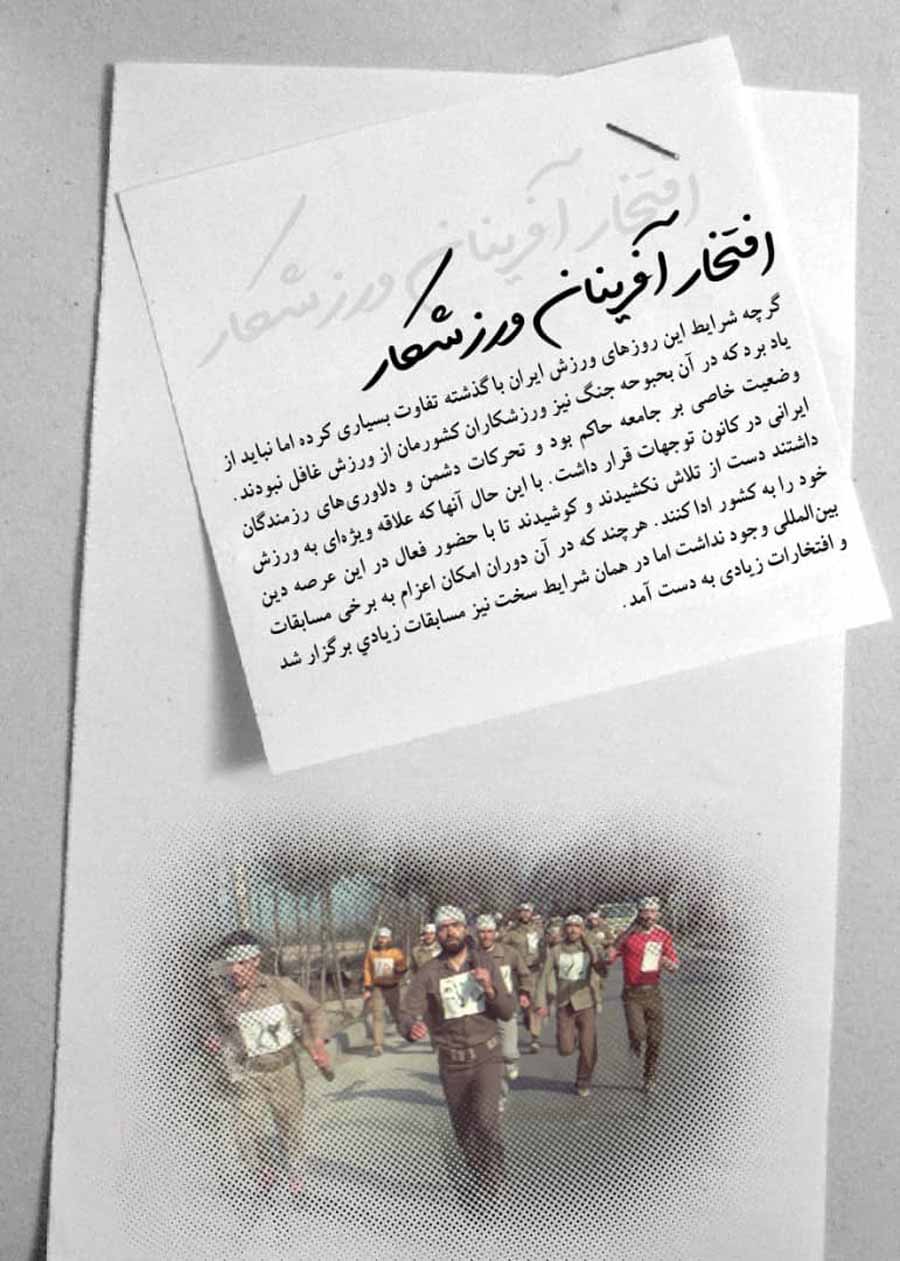 افتخار آفرینان ورزشکار
افتخار آفرینان ورزشکار
گرچه شرایط این روزهای ورزش ایران با گذشته تفاوت بسیاری کرده اما نباید از
یاد برد که در آن بحبوحه جنگ نیز ورزشکاران کشورمان از ورزش غافل نبودند.
وضعیت خاصی بر جامعه حاکم بود و تحرکات دشمن و دلاوری‌های رزمندگان
ایرانی در کانون توجهات قرار داشت. با این حال آنها که علاقه ویژه‌ای به ورزش
داشتند دست از تلاش نکشیدند و کوشیدند تا با حضور فعال در این عرصه دین
خود را به کشور ادا کنند. هرچند که در آن دوران امکان اعزام به برخی مسابقات
بین‌المللی وجود نداشت اما در همان شرایط سخت نیز مسابقات زیادي برگزار شد
و افتخارات زیادی به دست آمد.